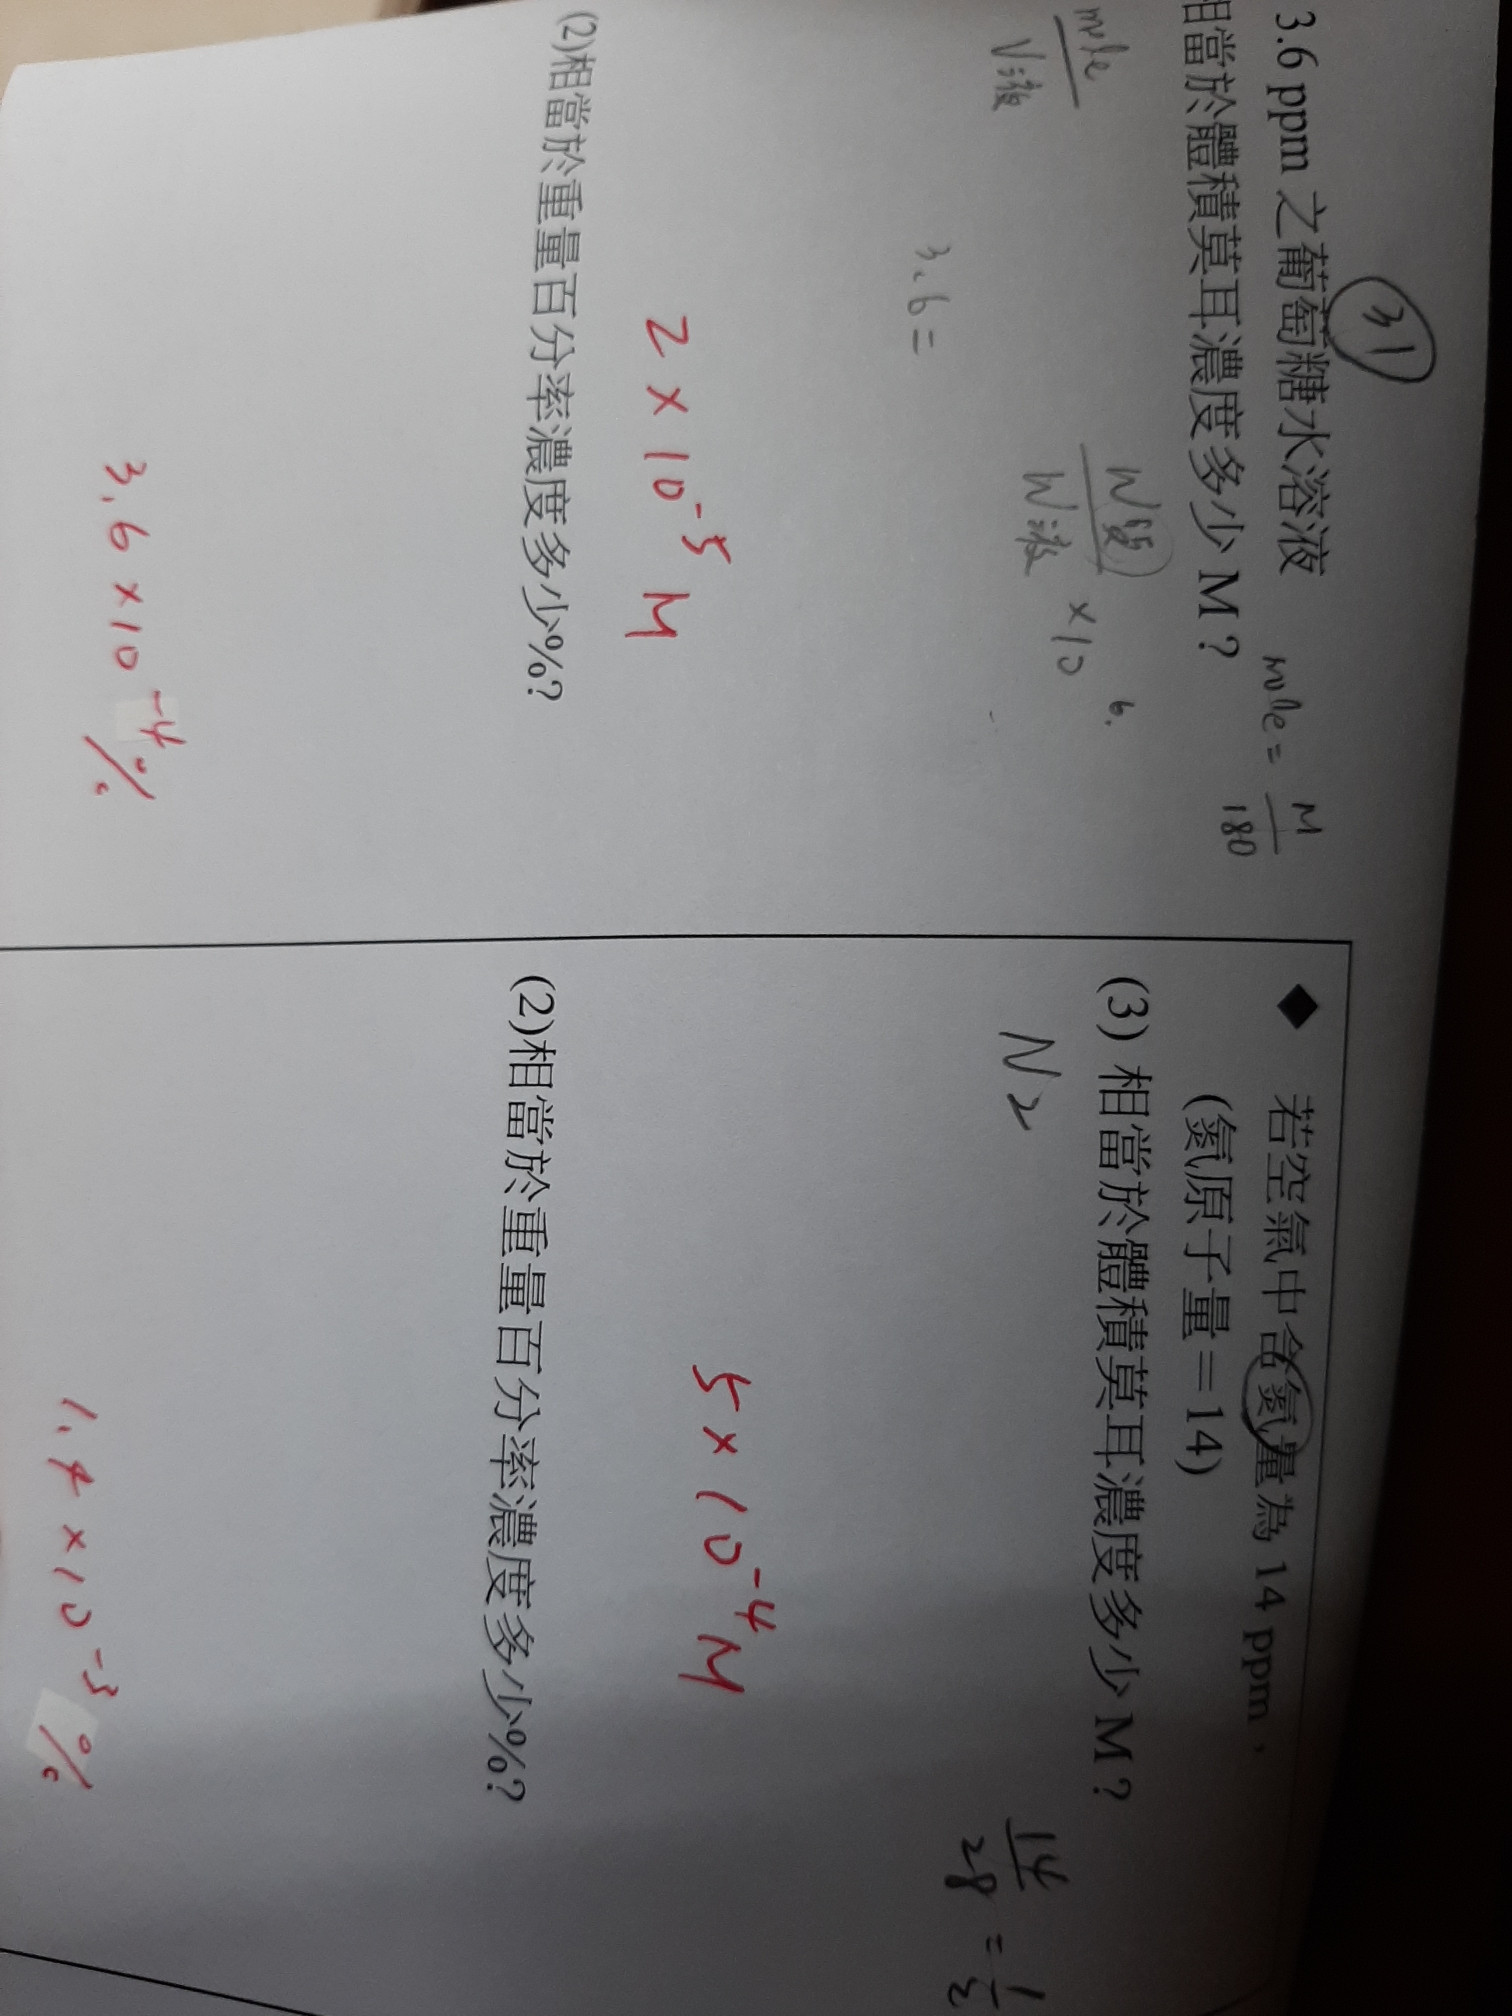 31
3.6 ppm 之葡萄糖水溶液
mole = M/180
相當於體積莫耳濃度多少 M？
mole/V液
W質/W液 × 10^6.
3.6 =
2 × 10^-5 M
(2)相當於重量百分率濃度多少%?
3.6 × 10^-4 %
◆ 若空氣中含氮量為 14 ppm，
(氮原子量＝14)
(3) 相當於體積莫耳濃度多少 M？
N2
14/28 = 1/2
5 × 10^-4 M
(2)相當於重量百分率濃度多少%?
1.4 × 10^-3 %